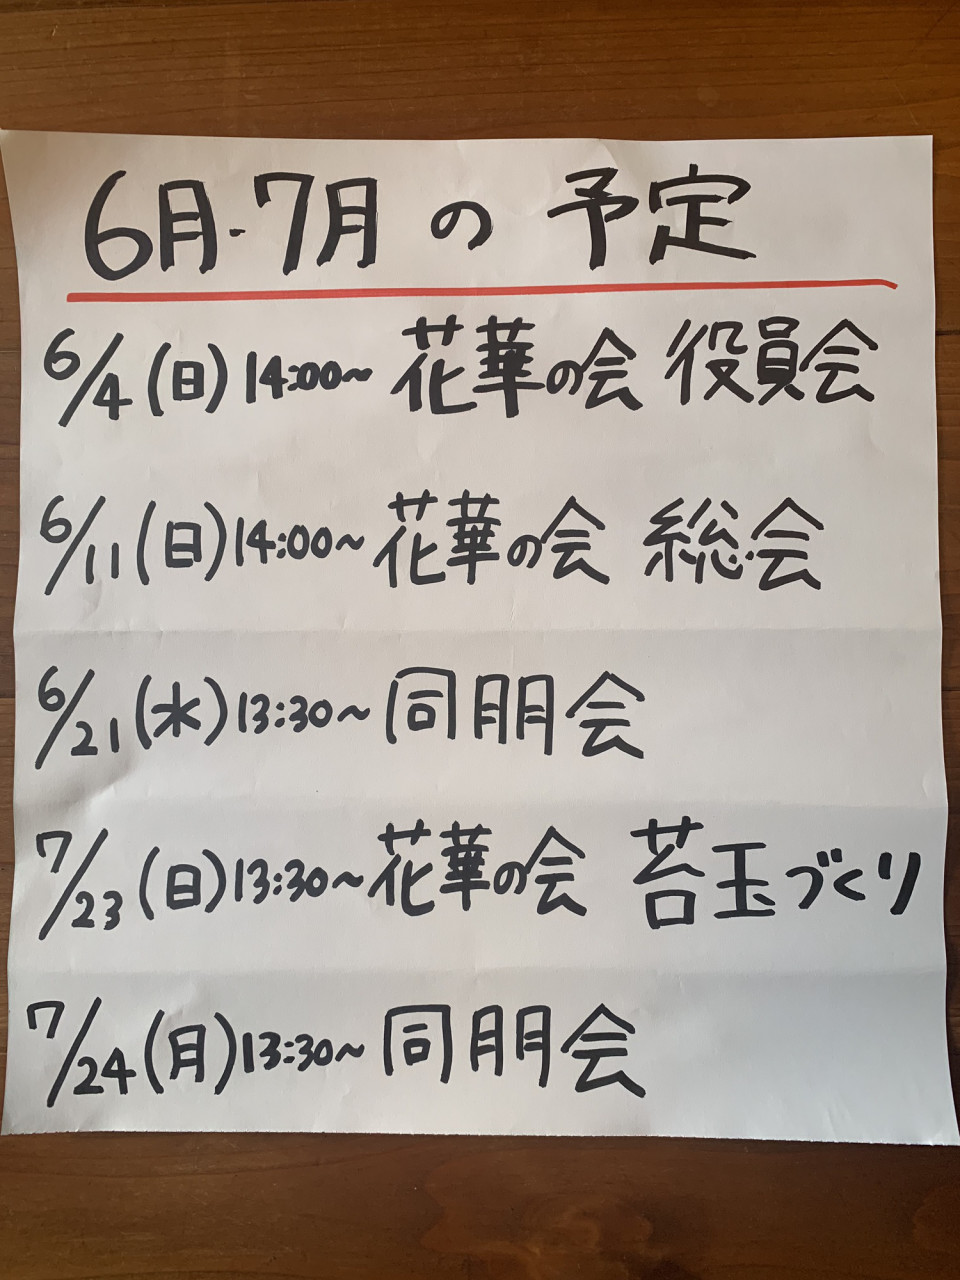 6月・7月の予定
6/4(日)14:00〜花華の会 役員会
6/11(日)14:00〜花華の会 総会
6/21(水)13:30〜同朋会
7/23(日)13:30〜花華の会 苔玉づくり
7/24(月)13:30〜同朋会